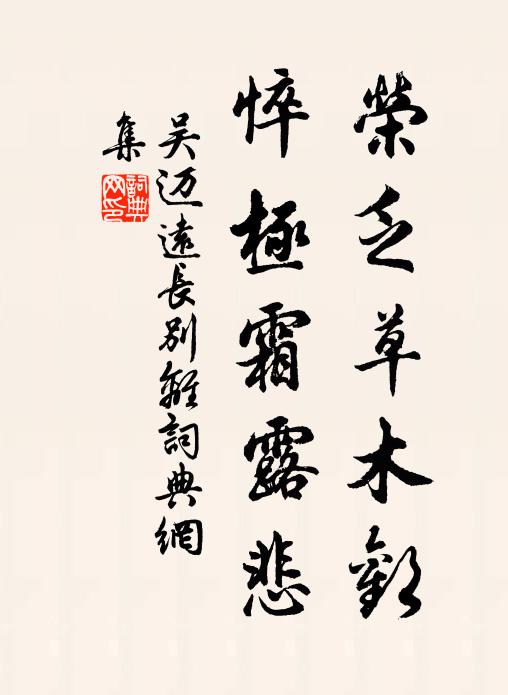 榮乏草木歡
悴極霜露悲
吴迈遠長别離詞典網
集
詞典網印